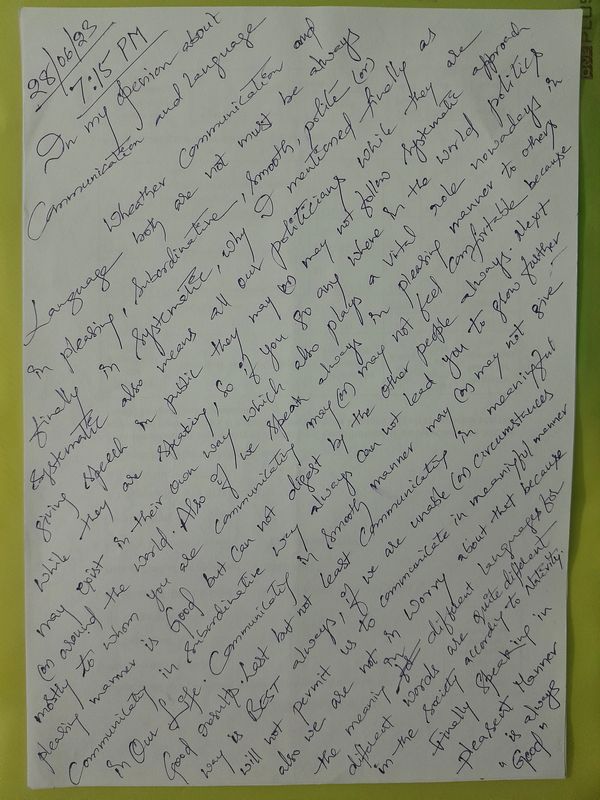 28/06/23
7:15 PM
In my opinion about
Communication and Language
Wheather Communication and
Language both are not must be always
in pleasing, Subordinative, Smooth, polite (or)
finally in Systematic, why I mentioned finally as
Systematic also means all our politicians while they are
giving speech in public they may (or) may not follow Systematic approach
while they are speaking, so if you go any where in the world politics
may exist in their own way which also plays a vital role nowadays in
(or) around the world. Also if we speak always in pleasing manner to others
mostly to whom you are communicating may (or) may not feel comfortable because
pleasing manner is Good but can not digest by the other people always. Next
Communicating in Subordinative way always can not lead you to glow further
in Our Life. Communicating in smooth manner may (or) may not give
Good results. Last but not least Communicating in meaningful
way is BEST always, if we are unable (or) Circumstances
will not permit us to communicate in meaningful manner
also we are not in worry about that because
the meaning in different languages for
different words are quite different
in the society according to Nativity.
Finally Speaking in
Pleasent Manner
"is always
Good"